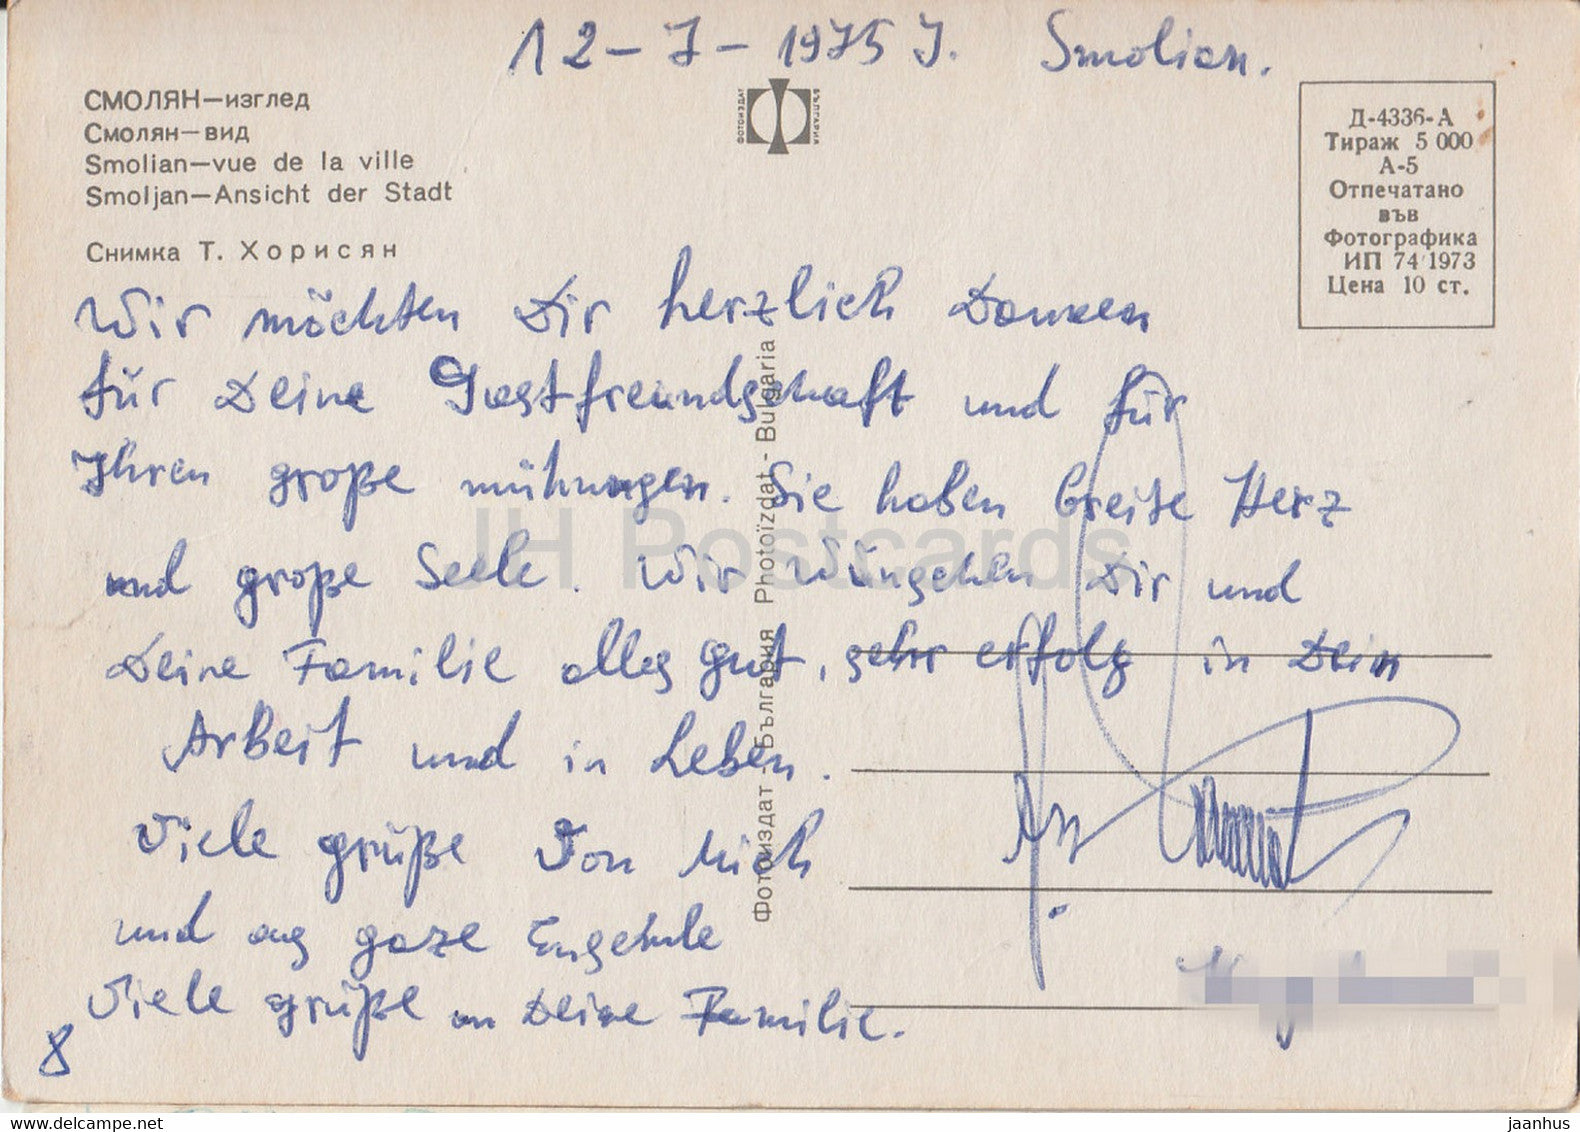 12-7-1975 J. Smolian.
СМОЛЯН—изглед
Смолян—вид
Smolian—vue de la ville
Smoljan—Ansicht der Stadt
Снимка Т. Хорисян
ФОТОИЗДАТ
БЪЛГАРИЯ
Д-4336-А
Тираж 5 000
А-5
Отпечатано
във
Фотографика
ИП 74 1973
Цена 10 ст.
Wir möchten Dir herzlich Danken
für Deine Gastfreundschaft und für
Ihren große mühungen. Sie haben breite Herz
und große Seele. Wir Wünschen Dir und
Deine Familie alles gut, sehr erfolg in Dein
Arbeit und in Leben.
Viele grüße Von Mich
und aus gaze
Viele grüße an Deine Familie.
8
Фотоиздат - България Photoïzdat - Bulgaria
JH Postcards
www.delcampe.net
jaanhus